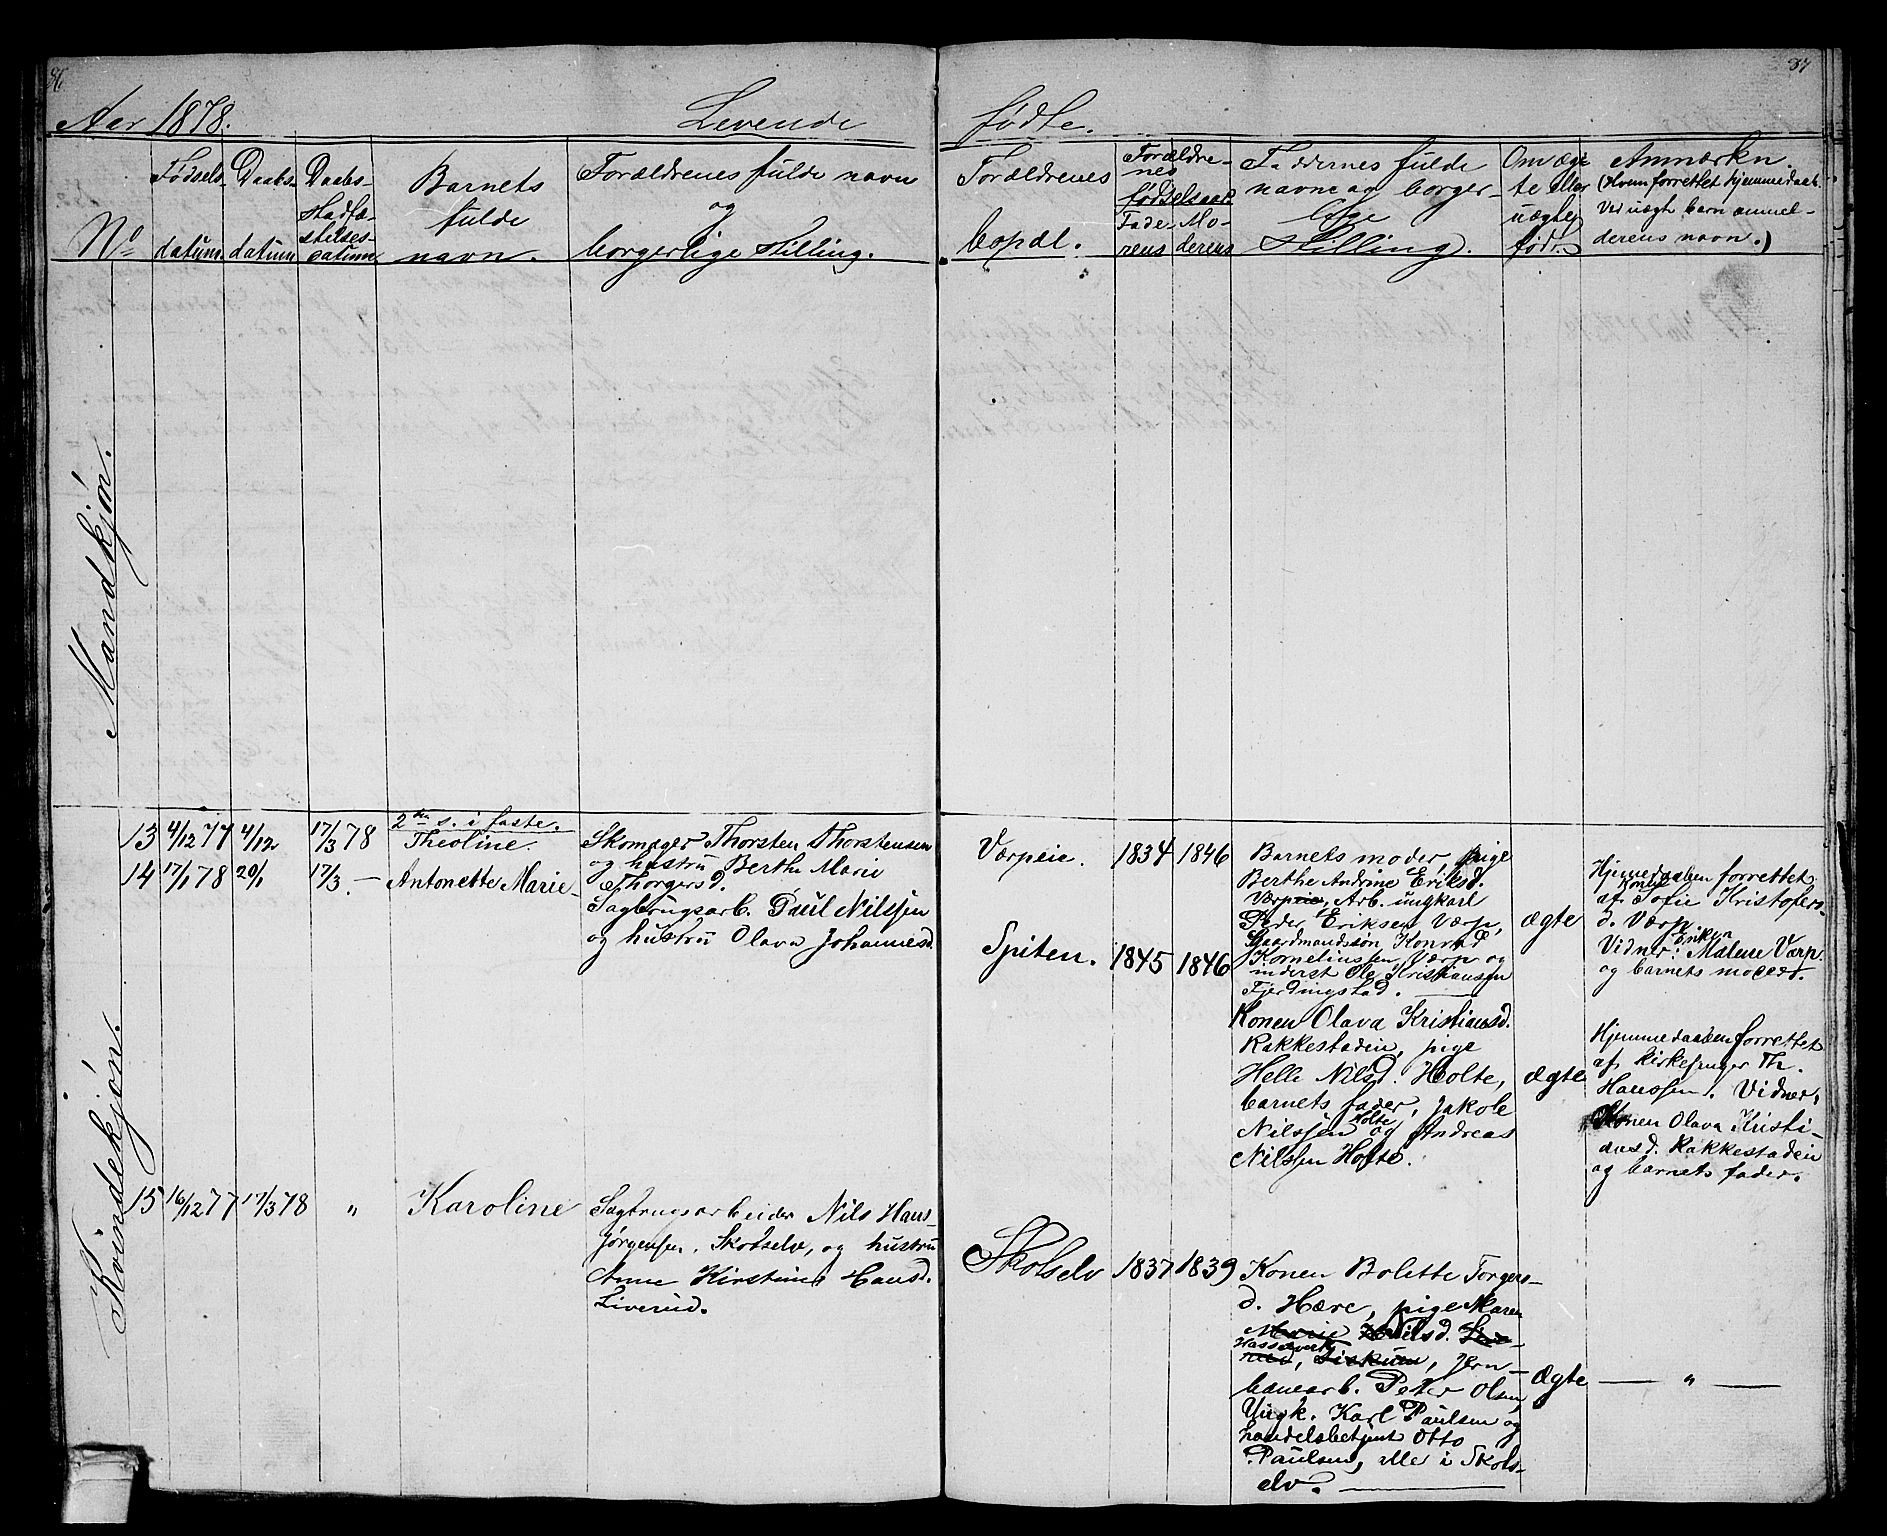 86
87
Aar 1878.
Levende
fødte.
No
Fødsels-
datum
Daabs-
datum
Daabs-
stadfæ-
stelses-
datum
Barnets
fulde
navn.
Forældrenes fulde navn
og
borgerlige stilling.
Forældrenes
bopæl.
Forældre-
nes
fødselsaar
Fade-
rens
Mo-
derens
Faddernes fulde
navne og borger-
lige
stilling.
Om ægte
te eller
uægte
født.
Anmærkn.
(Hvem forrettet hjemmedaab.
Ved uægt barn anmel-
derens navn.)
Mandkjøn.
Kvindekjøn.
2den s. i faste.
13
4/12 77
4/12
17/3 78
Theoline.
Skomager Thorsten Thorstensen
og hustru Berthe Marie
Thorgersd.
Værpeie.
1834
1846
Barnets moder, pige
Berthe Andrine Eriksd.
Værpeie, Arb. ungkarl
Peder Eriksen Værp,
Gaardmandssøn Konrad
Kornelius­sen Værp og
inderst Ole Kristiansen
Fjerdingstad.
ægte
Hjemmedaaben forrettet
af Konen Sofie Kristofers-
d. Værp
Vidner: Enken Malene Værp
og barnets moder.
14
17/1 78
20/1
17/3. —
Antonette Marie
Sagbrugsarb. Paul Nilssen
og hustru Olava Johannesd.
Spiten.
1845
1846
Konen Olava Kristiansd.
Rakkestadeie, pige
Helle Nilsd. Holte,
barnets fader, Jakob
Nilssen Holte og Andreas
Nilssen Holte.
ægte
Hjemmedaaben forrettet
af kirkesanger Th.
Hanssen. Vidner:
Konen Olava Kristi-
ansd. Rakkestadeie
og barnets fader.
15
16/12 77
17/3 78
"
Karoline
Sagbrugsarbeider Nils Hans
Jørgensen, Skotselv, og hustru
Anne Kirstine Hansd.
Liverud.
Skotselv
1837
1839
Konen Bolette Torgers-
d. Hære, pige Maren
Marie Nilsd.
Hasselverk
, Jern-
banearb. Peter Olsen,
Ungk. Karl Paulsen og
handelsbetjent Otto
Paulsen, alle i Skots-
elv.
Ægte
— " —